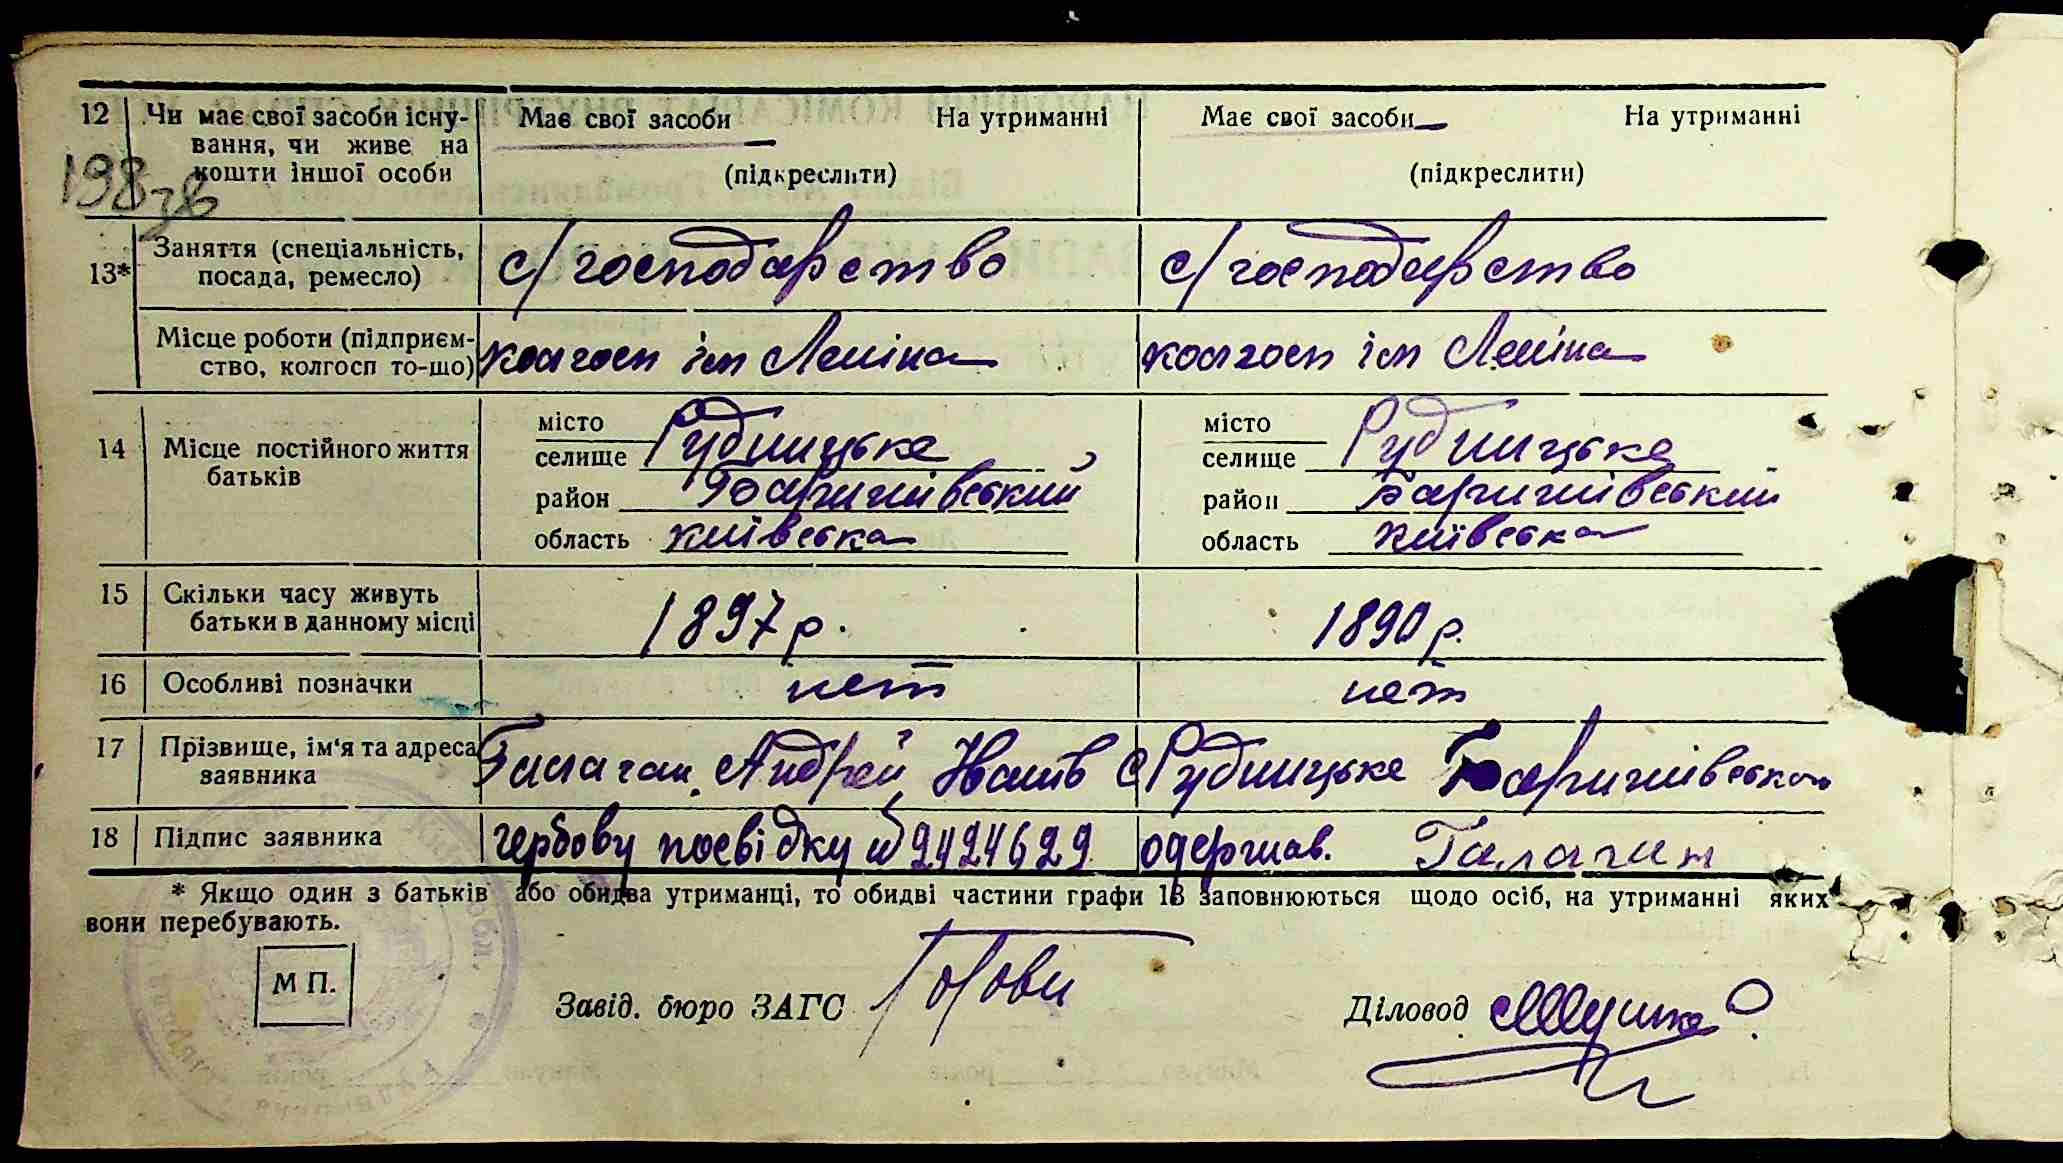 12 Чи має свої засоби існу- Має свої засоби На утриманні Має свої засоби На утриманні
вання, чи живе на
кошти іншої особи (підкреслити) (підкреслити)
198
13* Заняття (спеціальність, с/господарство с/господарство
посада, ремесло)
Місце роботи (підприєм- колгосп ім Леніна колгосп ім Леніна
ство, колгосп то-що)
14 Місце постійного життя місто Рудницьке місто Рудницьке
батьків селище селище
район Баришівський район Баришівський
область київська область київська
15 Скільки часу живуть 1897 р. 1890 р.
батьки в данному місці
16 Особливі позначки нет нет
17 Прізвище, ім'я та адреса Галаган Андрей Иванів с Рудницьке Баришівського
заявника
18 Підпис заявника гербову посвідку № 2424629 одержав. Галаган
* Якщо один з батьків або обидва утриманці, то обидві частини графи 13 заповнюються щодо осіб, на утриманні яких
вони перебувають.
М П.
Завід. бюро ЗАГС Діловод